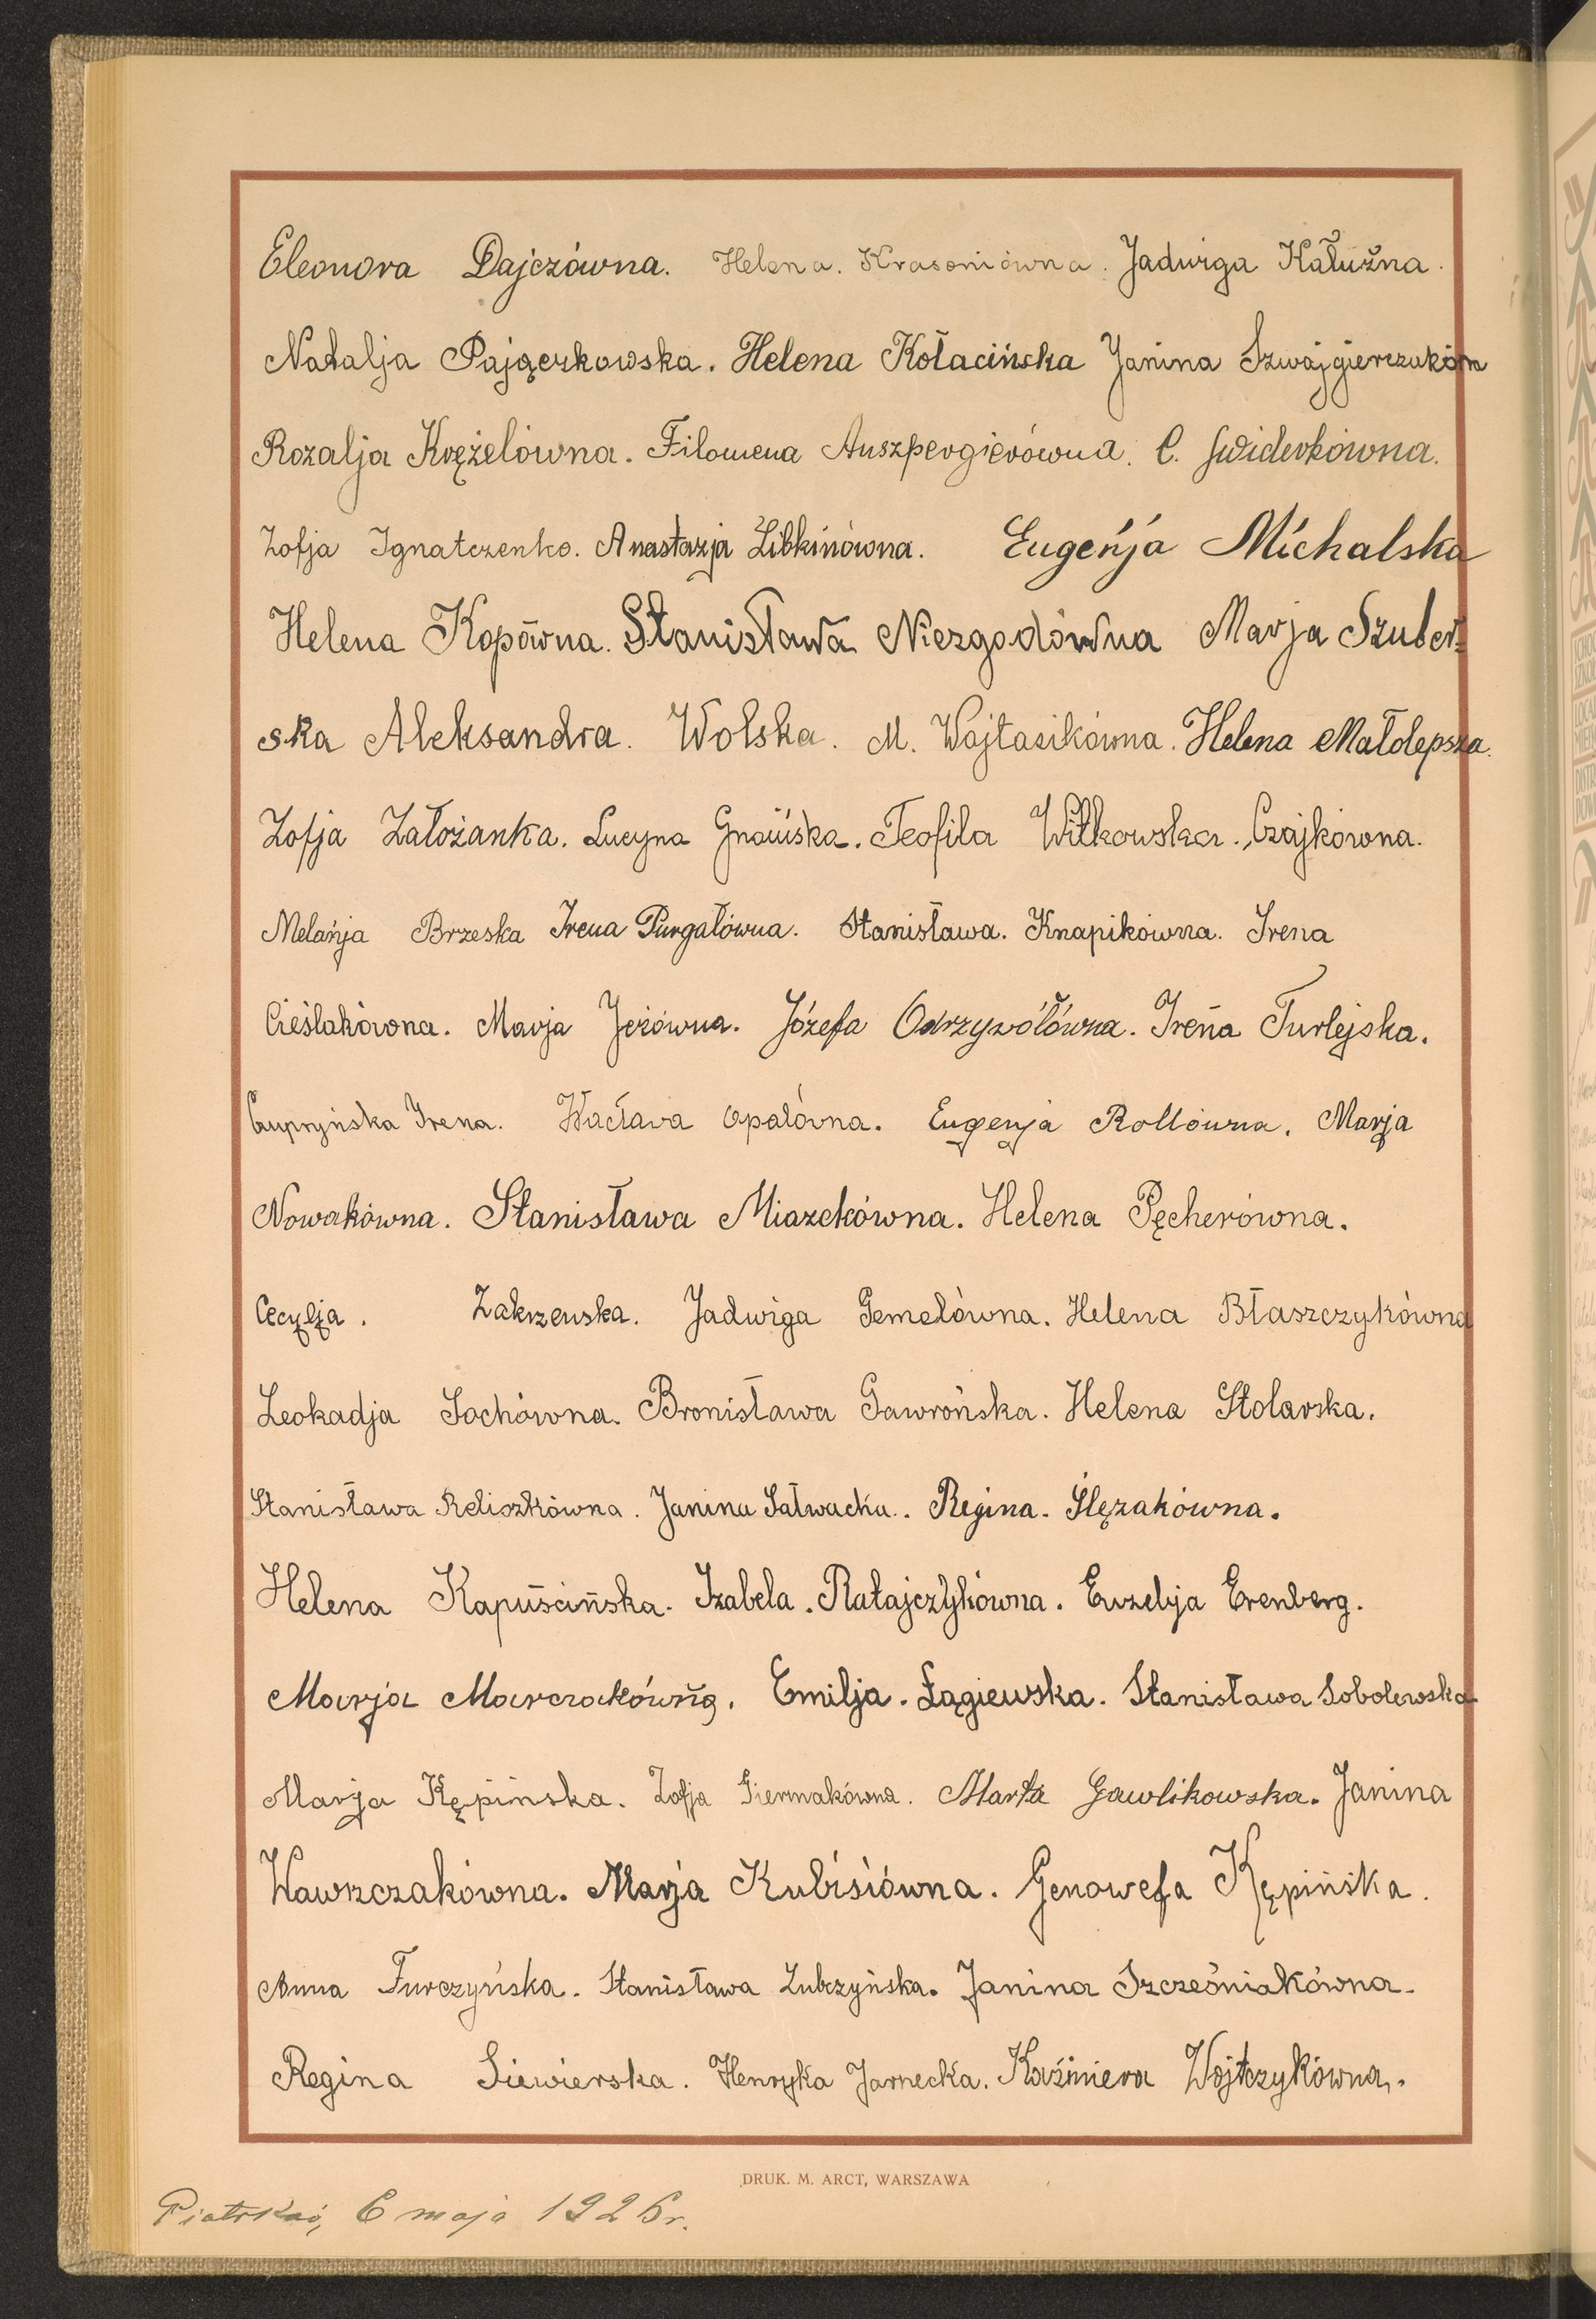 Eleonora Dajczówna. Helena. Krasoniówna. Jadwiga Kałużna.
Natalja Pajączkowska. Helena Kołacińska Janina Szwajgierczukówn
Rozalja Krężelówna. Filomena Auszpergierówna. C. Świderkówna.
Zofja Ignatczenko. Anastazja Libkinówna. Eugenja Michalska
Helena Kopówna. Stanisława Niezgodówna Marja Szuber=
ska Aleksandra. Wolska. M. Wojtasikówna. Helena Małolepsza.
Zofja Założanka. Lucyna Gnaińska. Teofila Witkowska. Czajkówna.
Melanja Brzeska Irena Purgałówna. Stanisława. Knapikówna. Irena
Cieślakówna. Marja Jeżówna. Józefa Odrzywółówna. Irena Turlejska.
Cupryńska Irena. Wacława Opalówna. Eugenja Rollówna. Marja
Nowakówna. Stanisława Miazekówna. Helena Pęcherówna.
Cecylja. Zakrzewska. Jadwiga Gemelówna. Helena Błaszczykówna
Leokadja Sochówna. Bronisława Gawrońska. Helena Stolarska.
Stanisława Reliszkówna. Janina Sałwacka. Regina. Ślęzakówna.
Helena Kapuścińska. Izabela. Ratajczykówna. Euzelja Erenberg.
Marja Marczakówna. Emilja. Łągiewska. Stanisława Sobolewska
Marja Kępińska. Zofja Siermakówna. Marta Gawlikowska. Janina
Wawrzczakówna. Marja Kubisiówna. Genowefa Kępińska.
Anna Turczyńska. Stanisława Lubczyńska. Janina Szcześniakówna.
Regina Siewierska. Henryka Jarnecka. Kaźmiera Wojtczykówna.
DRUK. M. ARCT, WARSZAWA
6 maja 1926 r.